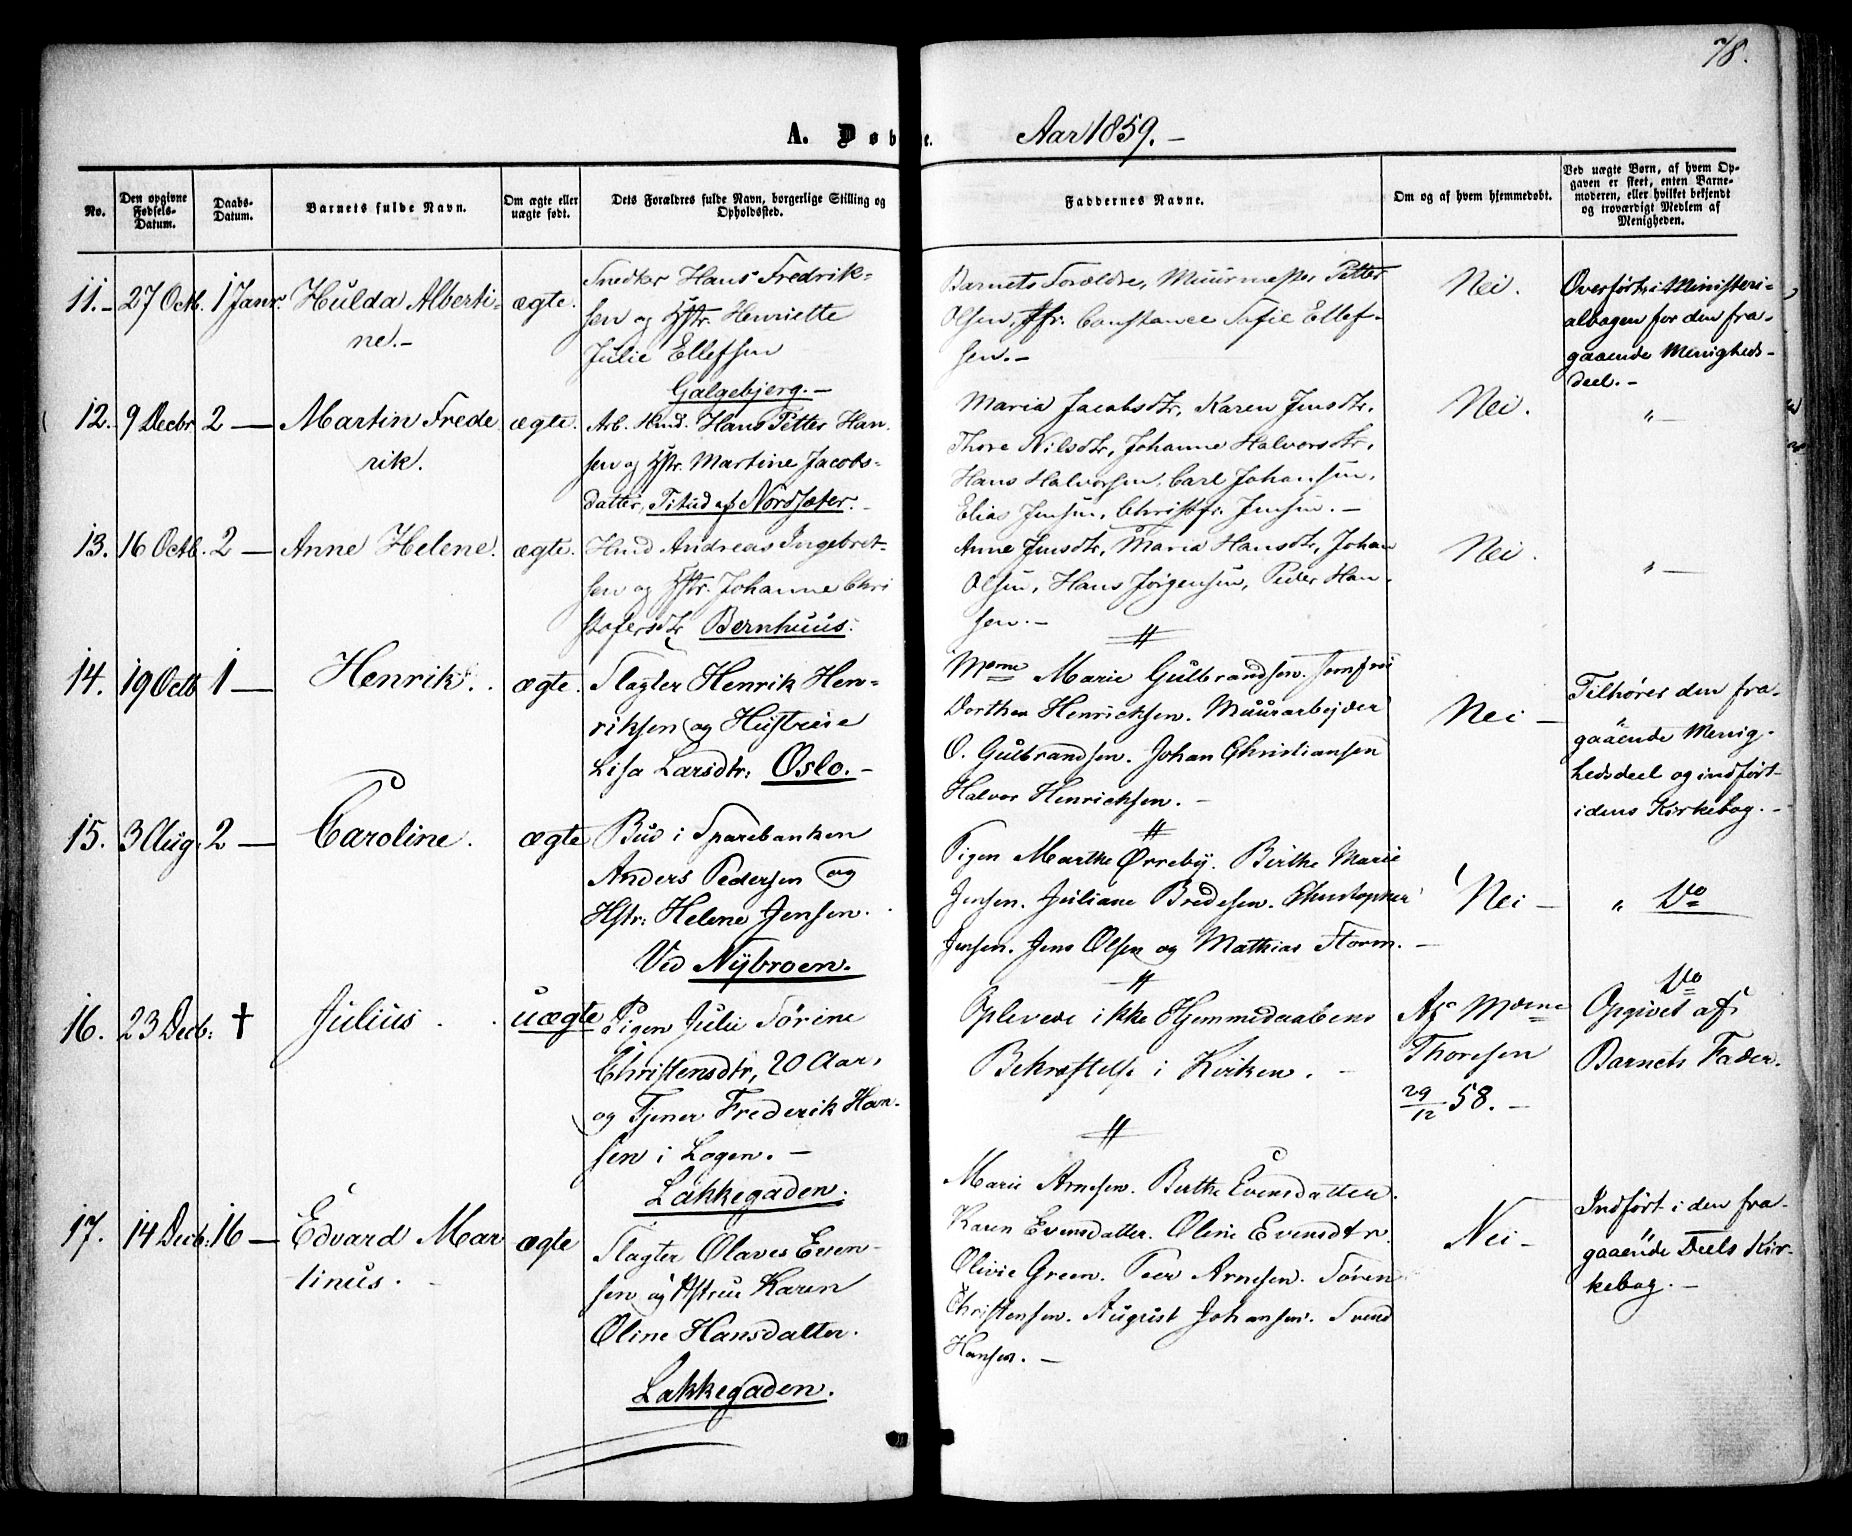 78.
A. Døb e. Aar 1859. -
No.
Den opgivne Fødsels-Datum.
Daabs-Datum.
Barnets fulde Navn.
Om ægte eller uægte født.
Dets Forældres fulde Navn, borgerlige Stilling og Opholdssted.
Faddernes Navne.
Om og af hvem hjemmedøbt.
Ved uægte Børn, af hvem Opgaven er skeet, enten Barnemoderen, eller hvilket bekjendt og troværdigt Medlem af Menigheden.
11. - 27 Octb. 1 Janr. Hulda Alberti-
ne. -
ægte.
Snedker Hans Fredrik-
sen og Hstr. Henriette
Julie Ellefsen
Galgebjerg. -
Barnets Forældre, Muurmester Petter
Olsen, Jfr. Constance Sofie Ellef-
sen. -
Nei.
Overført i Ministeri-
albogen for den fra-
gaaende Menigheds-
deel. -
12. 9 Decbr 2 — Martin Frede
rik.
ægte.
Arb. Hmd. Hans Petter Han-
sen og Hstr. Martine Jacobs-
datter, Nordsæter. -
Maria Jacobsdtr, Karen Jensdtr,
Thore Nilsdtr, Johanne Halvorsdtr,
Hans Halvorsen, Carl Johansen,
Elias Jensen, Christfr. Jensen. -
Nei.
" —
13. 16 Octb. 2 — Anne Helene.
ægte.
Hmd Andreas Ingebret-
sen og Hstr. Johanne Chri
stofersdtr Bernhuus.
Anne Jensdtr, Maria Hansdtr, Johan
Olsen, Hans Jørgensen, Peder Han-
sen. -
Nei.
" —
14. 19 Octb 1 — Henrik.
ægte.
Slagter Henrik Hen-
riksen og Hustrue
Lisa Larsdtr: Oslo. -
Mdme Marie Gulbrandsen. Jomfru
Dorthea Henricksen. Muurarbejder
O. Gulbrandsen. Johan Christiansen
Halvor Henricksen. -
Nei -
Tilhører den fra-
gaaende Menig-
hedsdeel og indført
i dens Kirkebog. -
15. 3 Aug. 2 — Caroline.
ægte
Bud i Sparebanken
Anders Pedersen og
Hstr: Helene Jensen.
Ved Nybroen.
Pigen Marthe Ørreby. Birthe Marie
Jensen. Juliane Bredesen. Christopher
Jensen. Jens Olsen og Mathias Storm. -
Nei -
" Do
16. 23 Decb: † Julius.
uægte
Pigen Julie Sørine
Christensdtr, 20 Aar,
og Tjener Frederik Han-
sen i Logen. -
Lakkegaden.
Oplevede ikke Hjemmedaabens
Bekræftelse i Kirken. -
Af Mdme
Thoresen
29/12 58. -
Do
Opgivet af
Barnets Fader.
17. 14 Decb: 16 — Edvard Mar
tinus.
ægte
Slagter Olaves Even-
sen og Hstrue Karen
Oline Hansdatter.
Lakkegaden.
Marie Arnesen. Berthe Evensdatter.
Karen Evensdatter. Oline Evensdtr.
Olivie Green. Peer Arnesen. Søren
Christensen. August Johansen. Svend
Hansen. -
Nei -
Indført i den fra-
gaaende Deels Kir-
kebog. -